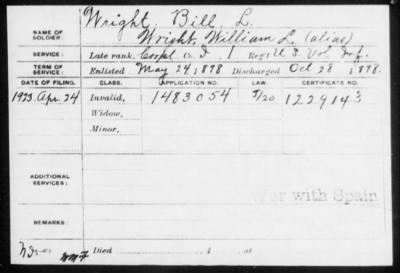 Wright, Bill L.
NAME OF SOLDIER: Wright, William L. (alias)
SERVICE: Late rank, Corpl Co. I, 1 Reg't U S. Vol. Inf.
TERM OF SERVICE: Enlisted May 24, 1898 Discharged Oct 28, 1898.
DATE OF FILING. CLASS. APPLICATION NO. LAW. CERTIFICATE NO.
1923 Apr. 24 Invalid, 1483054 5/20 1229143
Widow,
Minor,
ADDITIONAL SERVICES:
War with Spain
REMARKS:
Died , 1 , at